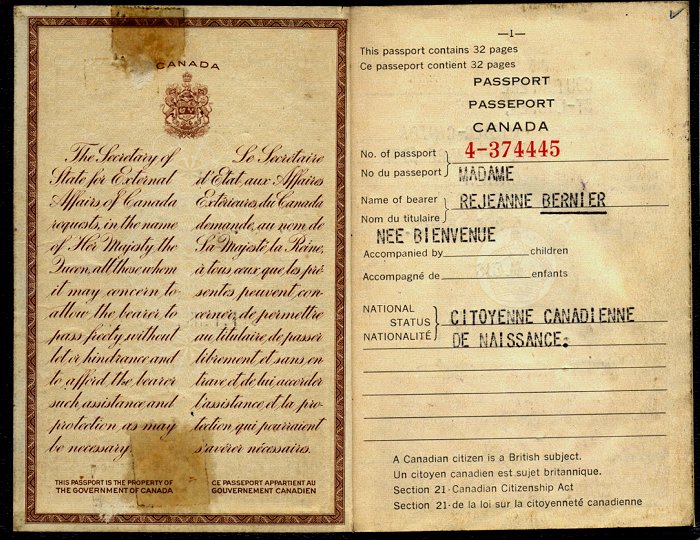 CANADA
The Secretary of
State for External
Affairs of Canada
requests, in the name
of Her Majesty the
Queen, all those whom
it may concern to
allow the bearer to
pass freely without
let or hindrance and
to afford the bearer
such assistance and
protection as may
be necessary.
Le Secrétaire
d'Etat aux Affaires
Extérieures du Canada
demande, au nom de
Sa Majesté la Reine,
à tous ceux que les pré-
sentes peuvent con-
cerner, de permettre
au titulaire de passer
librement, et sans en-
trave et de lui accorder
l'assistance et la pro-
tection qui pourraient
s'avérer nécessaires.
THIS PASSPORT IS THE PROPERTY OF
THE GOVERNMENT OF CANADA
CE PASSEPORT APPARTIENT AU
GOUVERNEMENT CANADIEN
—1—
This passport contains 32 pages
Ce passeport contient 32 pages
PASSPORT
PASSEPORT
CANADA
No. of passport 4-374445
No du passeport MADAME
Name of bearer REJEANNE BERNIER
Nom du titulaire
NEE BIENVENUE
Accompanied by children
Accompagné de enfants
NATIONAL
STATUS CITOYENNE CANADIENNE
NATIONALITÉ DE NAISSANCE.
A Canadian citizen is a British subject.
Un citoyen canadien est sujet britannique.
Section 21-Canadian Citizenship Act
Section 21-de la loi sur la citoyenneté canadienne